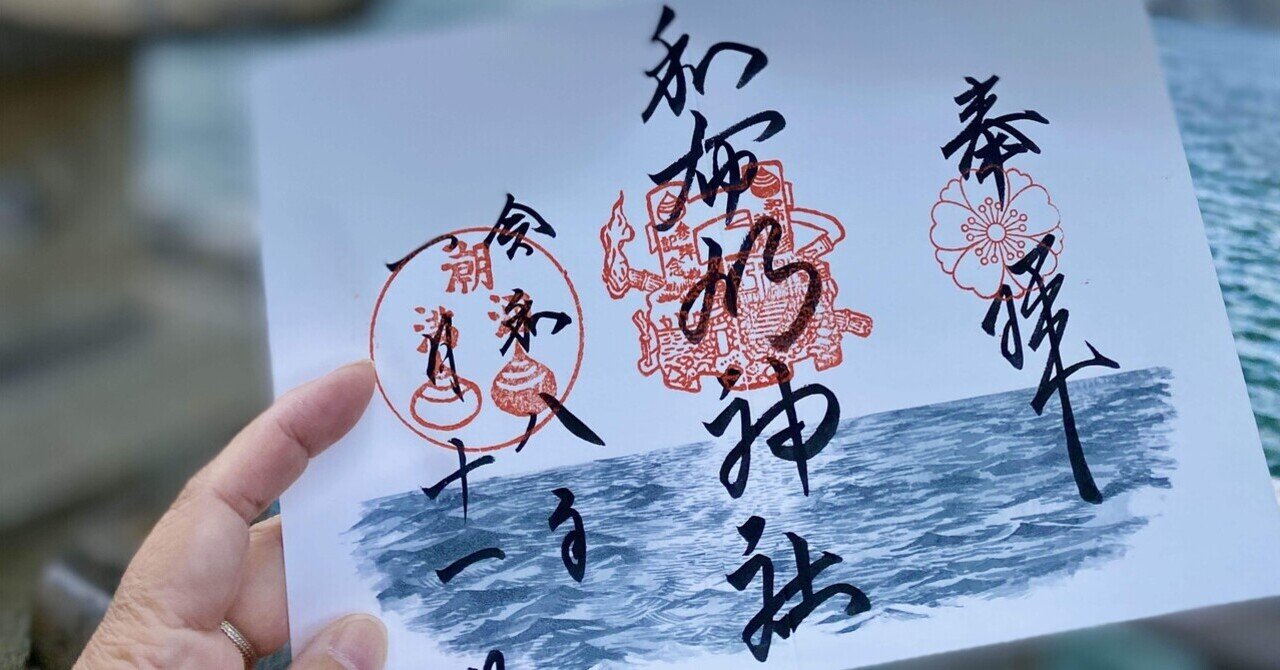 奉拝
和布刈神社
令和八年
一月十一
潮
満